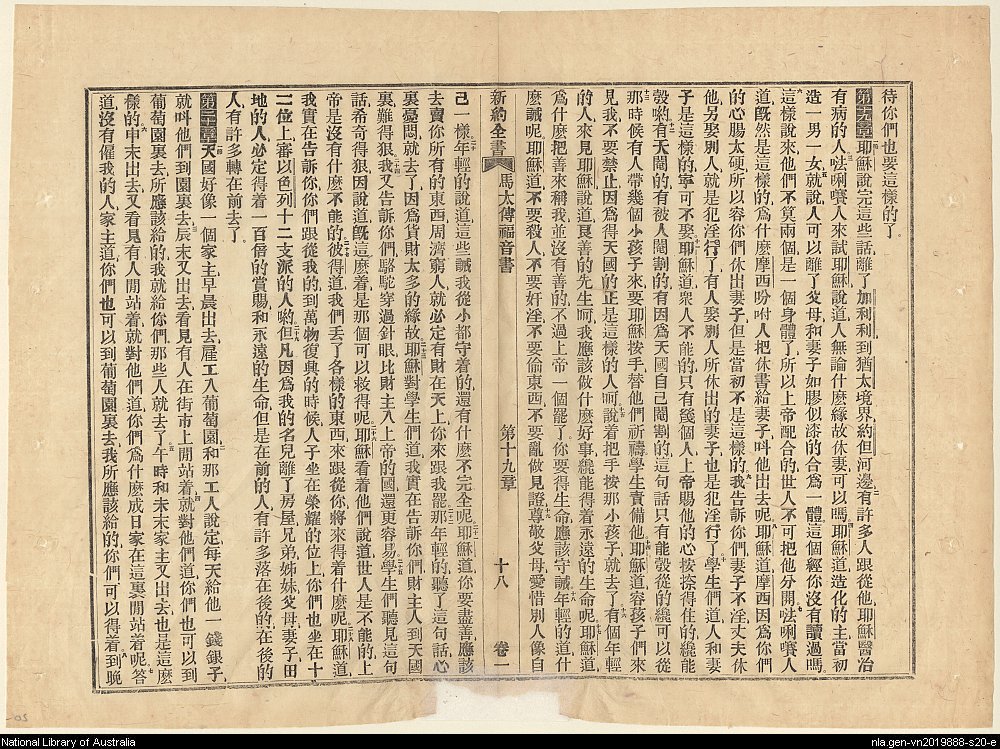 待你們也要這樣的了
第十九章耶穌說完這些話離了加利利到猶太境界約但河邊有許多人跟從他耶穌醫治
有病的人哇唎賽人來試耶穌說道人無論什麼緣故休妻可以嗎耶穌道造化的主當初
造一男一女就說人可以離了父母和妻子如膠似漆的合為一體這個經你沒有讀過嗎
這樣說來他們不算兩個是一個身體了所以上帝配合的世人不可把他分開哇唎賽人
道既然是這樣的為什麼摩西吩咐人把休書給妻子呌他出去呢耶穌道摩西因為你們
的心腸太硬所以容你們休出妻子但是當初不是這樣的我告訴你們妻子不淫丈夫休
他另娶別人就是犯淫行了有人娶別人所休出的妻子也是犯淫行了學生們道人和妻
子是這樣的寧可不娶耶穌道衆人不能的只有幾個人上帝賜他的心按捺得住的纔能
彀喲有天閹的有被人閹割的有因為天國自己閹割的這句話只有能彀從的纔可以從
那時候有人帶幾個小孩子來要耶穌按手替他們祈禱學生責備他耶穌道容孩子們來
見我不要禁止因為得天國的正是這樣的人呵說着把手按那小孩子就去了有個年輕
的人來見耶穌說道良善的先生呵我應該做什麼好事纔能得着永遠的生命呢耶穌道
為什麼把善來稱我並沒有善的不過上帝一個罷了你要得生命應該守誡年輕的道什
麼誡呢耶穌道不要殺人不要奸淫不要偷東西不要亂做見證尊敬父母愛惜別人像自
新約全書 馬太傳福音書 第十九章 十八 卷一
己一樣年輕的說道這些誡我從小都守着的還有什麼不完全呢耶穌道你要盡善應該
去賣你所有的東西周濟窮人就必定有財在天上你來跟我罷那年輕的聽了這句話心
裏憂悶就去了因為貨財太多的緣故耶穌對學生們道我實在告訴你們財主人到天國
裏難得狠我又告訴你們駱駝穿過針眼比財主入上帝的國還更容易學生們聽見這句
話希奇得狠因說道既這麼着是那個可以救得呢耶穌看着他們說道世人是不能的上
帝是沒有什麼不能的彼得道我們丟了各樣的東西來跟從你將來得着什麼呢耶穌道
我實在告訴你你們跟從我的到萬物復興的時候人子坐在榮耀的位上你們也坐在十
二位上審以色列十二支派的人喲但凡因為我的名兒離了房屋兄弟姊妹父母妻子田
地的人必定得着一百倍的賞賜和永遠的生命但是在前的人有許多落在後的在後的
人有許多轉在前去了
第二十章天國好像一個家主早晨出去雇工入葡萄園和那工人說定每天給他一錢銀子
就呌他們到園裏去辰末又出去看見有人在街市上閒站着就對他們道你們也可以到
葡萄園裏去所應該給的我就給你們那些人就去了午時和未末家主又出去也是這麼
樣的申末出去又看見有人閒站着就對他們道你們為什麼成日家在這裏閒站着呢答
道沒有僱我的人家主道你們也可以到葡萄園裏去我所應該給的你們可以得着到晚
National Library of Australia
nla.gen-vn2019888-s20-e